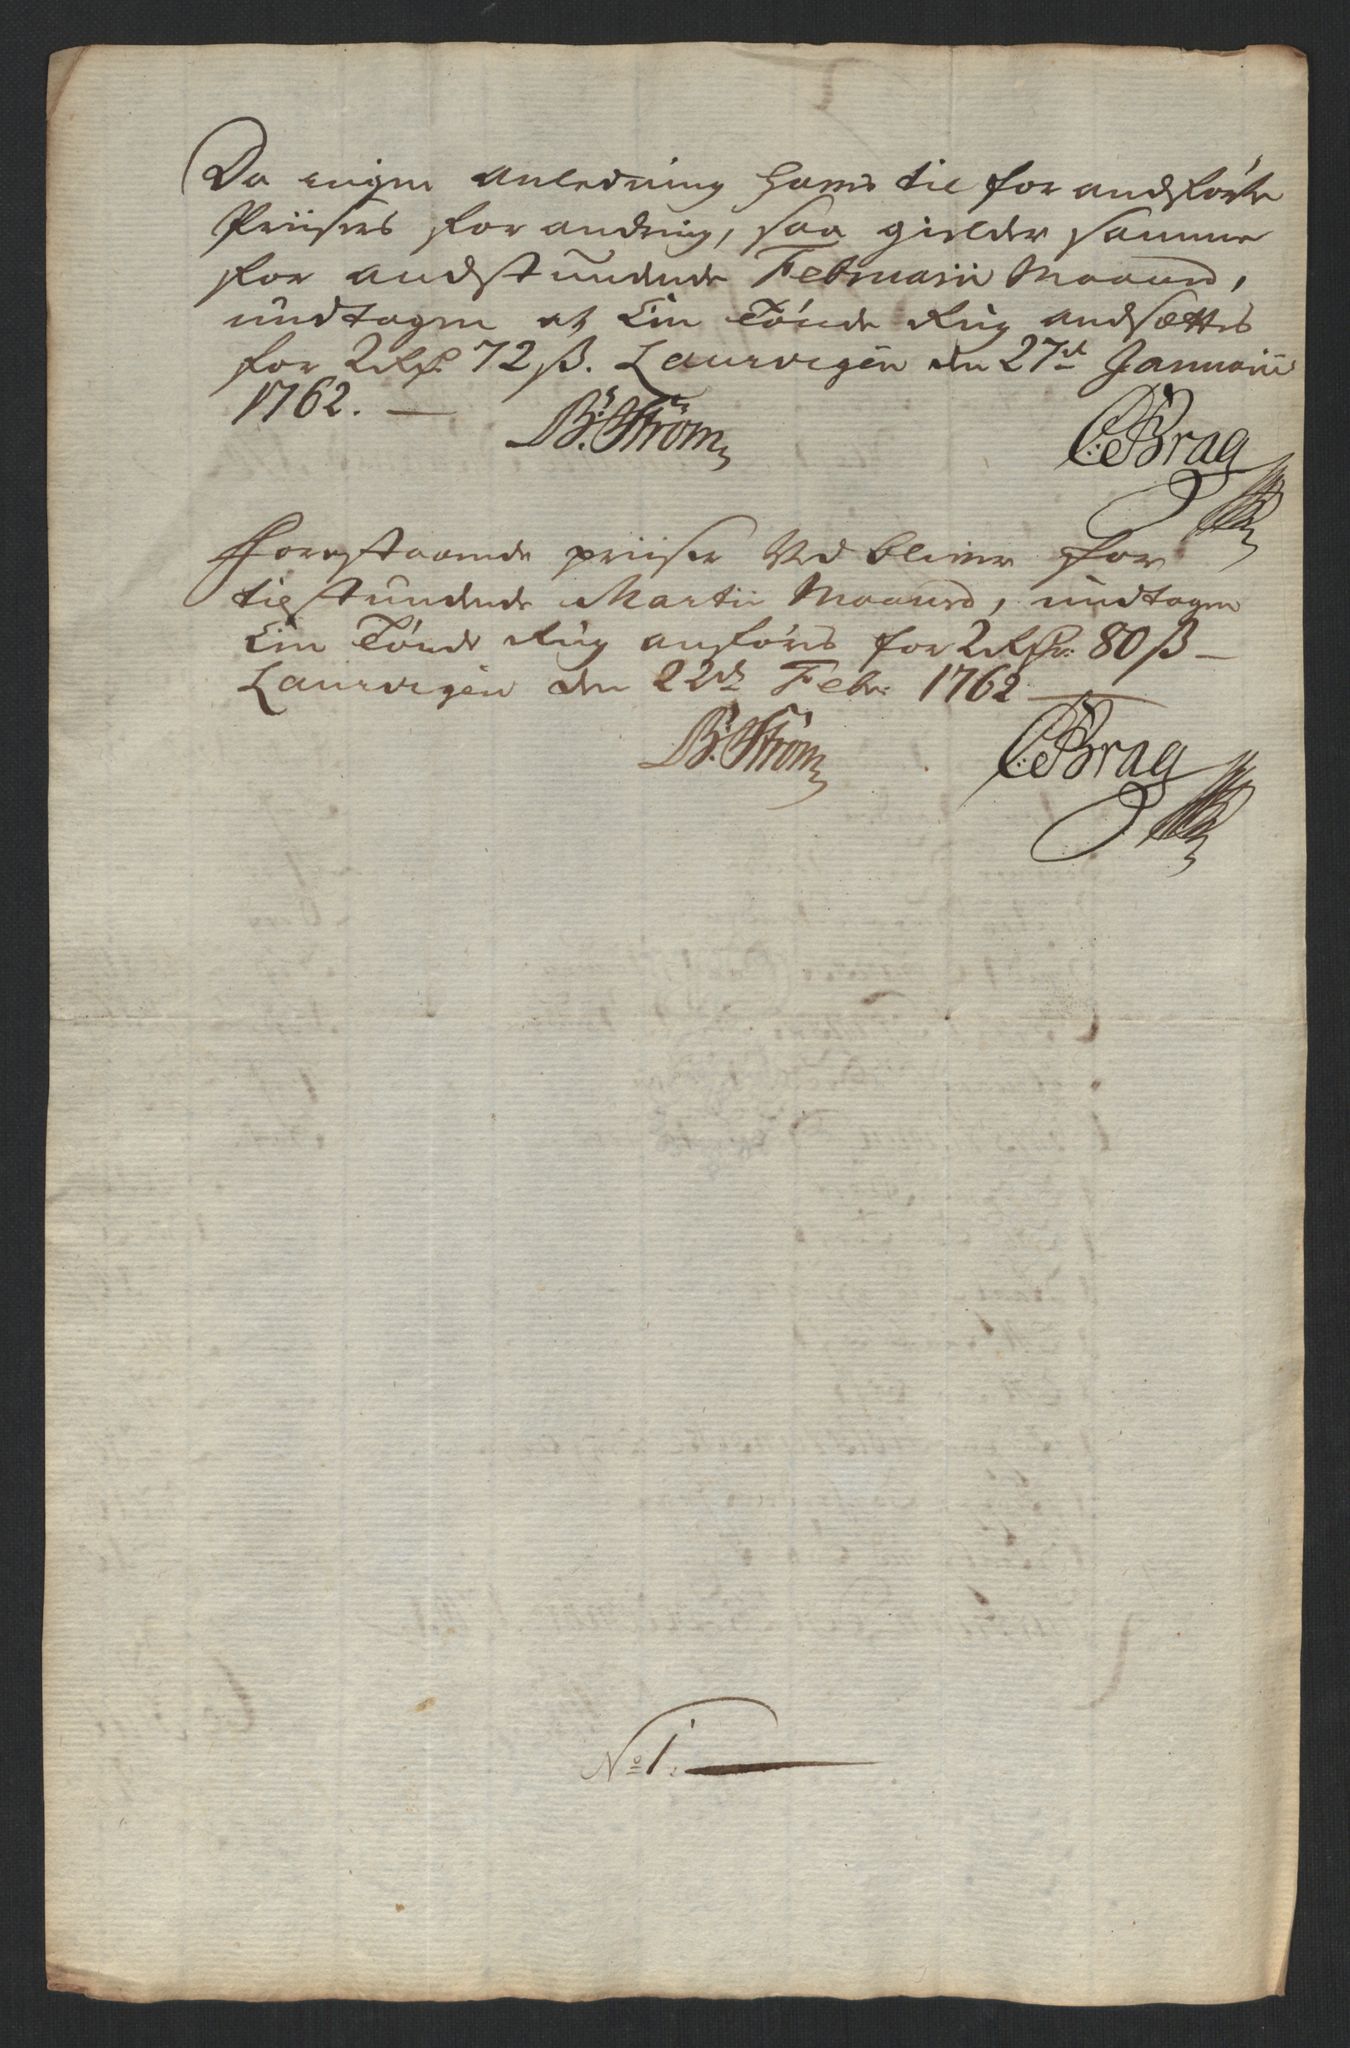 Da ingen anledning haves til for andførte
Priisers forandring, saa gielder samme
for andstundende Februarii Maaned,
undtagen at Een Tønde Rug andsættes
for 2 Rdr. 72 ß. Laurvigen den 27de Januarii
1762. —
B: Strøm C: Brag
Forestaaende priiser Ved bliver for
tilstundende Martii Maaned, undtagen
Een Tønde Rug anføres for 2 Rdr: 80 ß —
Laurvigen den 22de Febr: 1762
B: Strøm C: Brag
No 1.